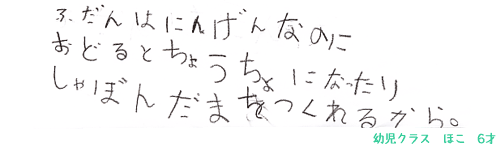 ふだんはにんげんなのに
おどるとちょうちょになったり
しゃぼんだまをつくれるから。
幼児クラス ほこ 6才